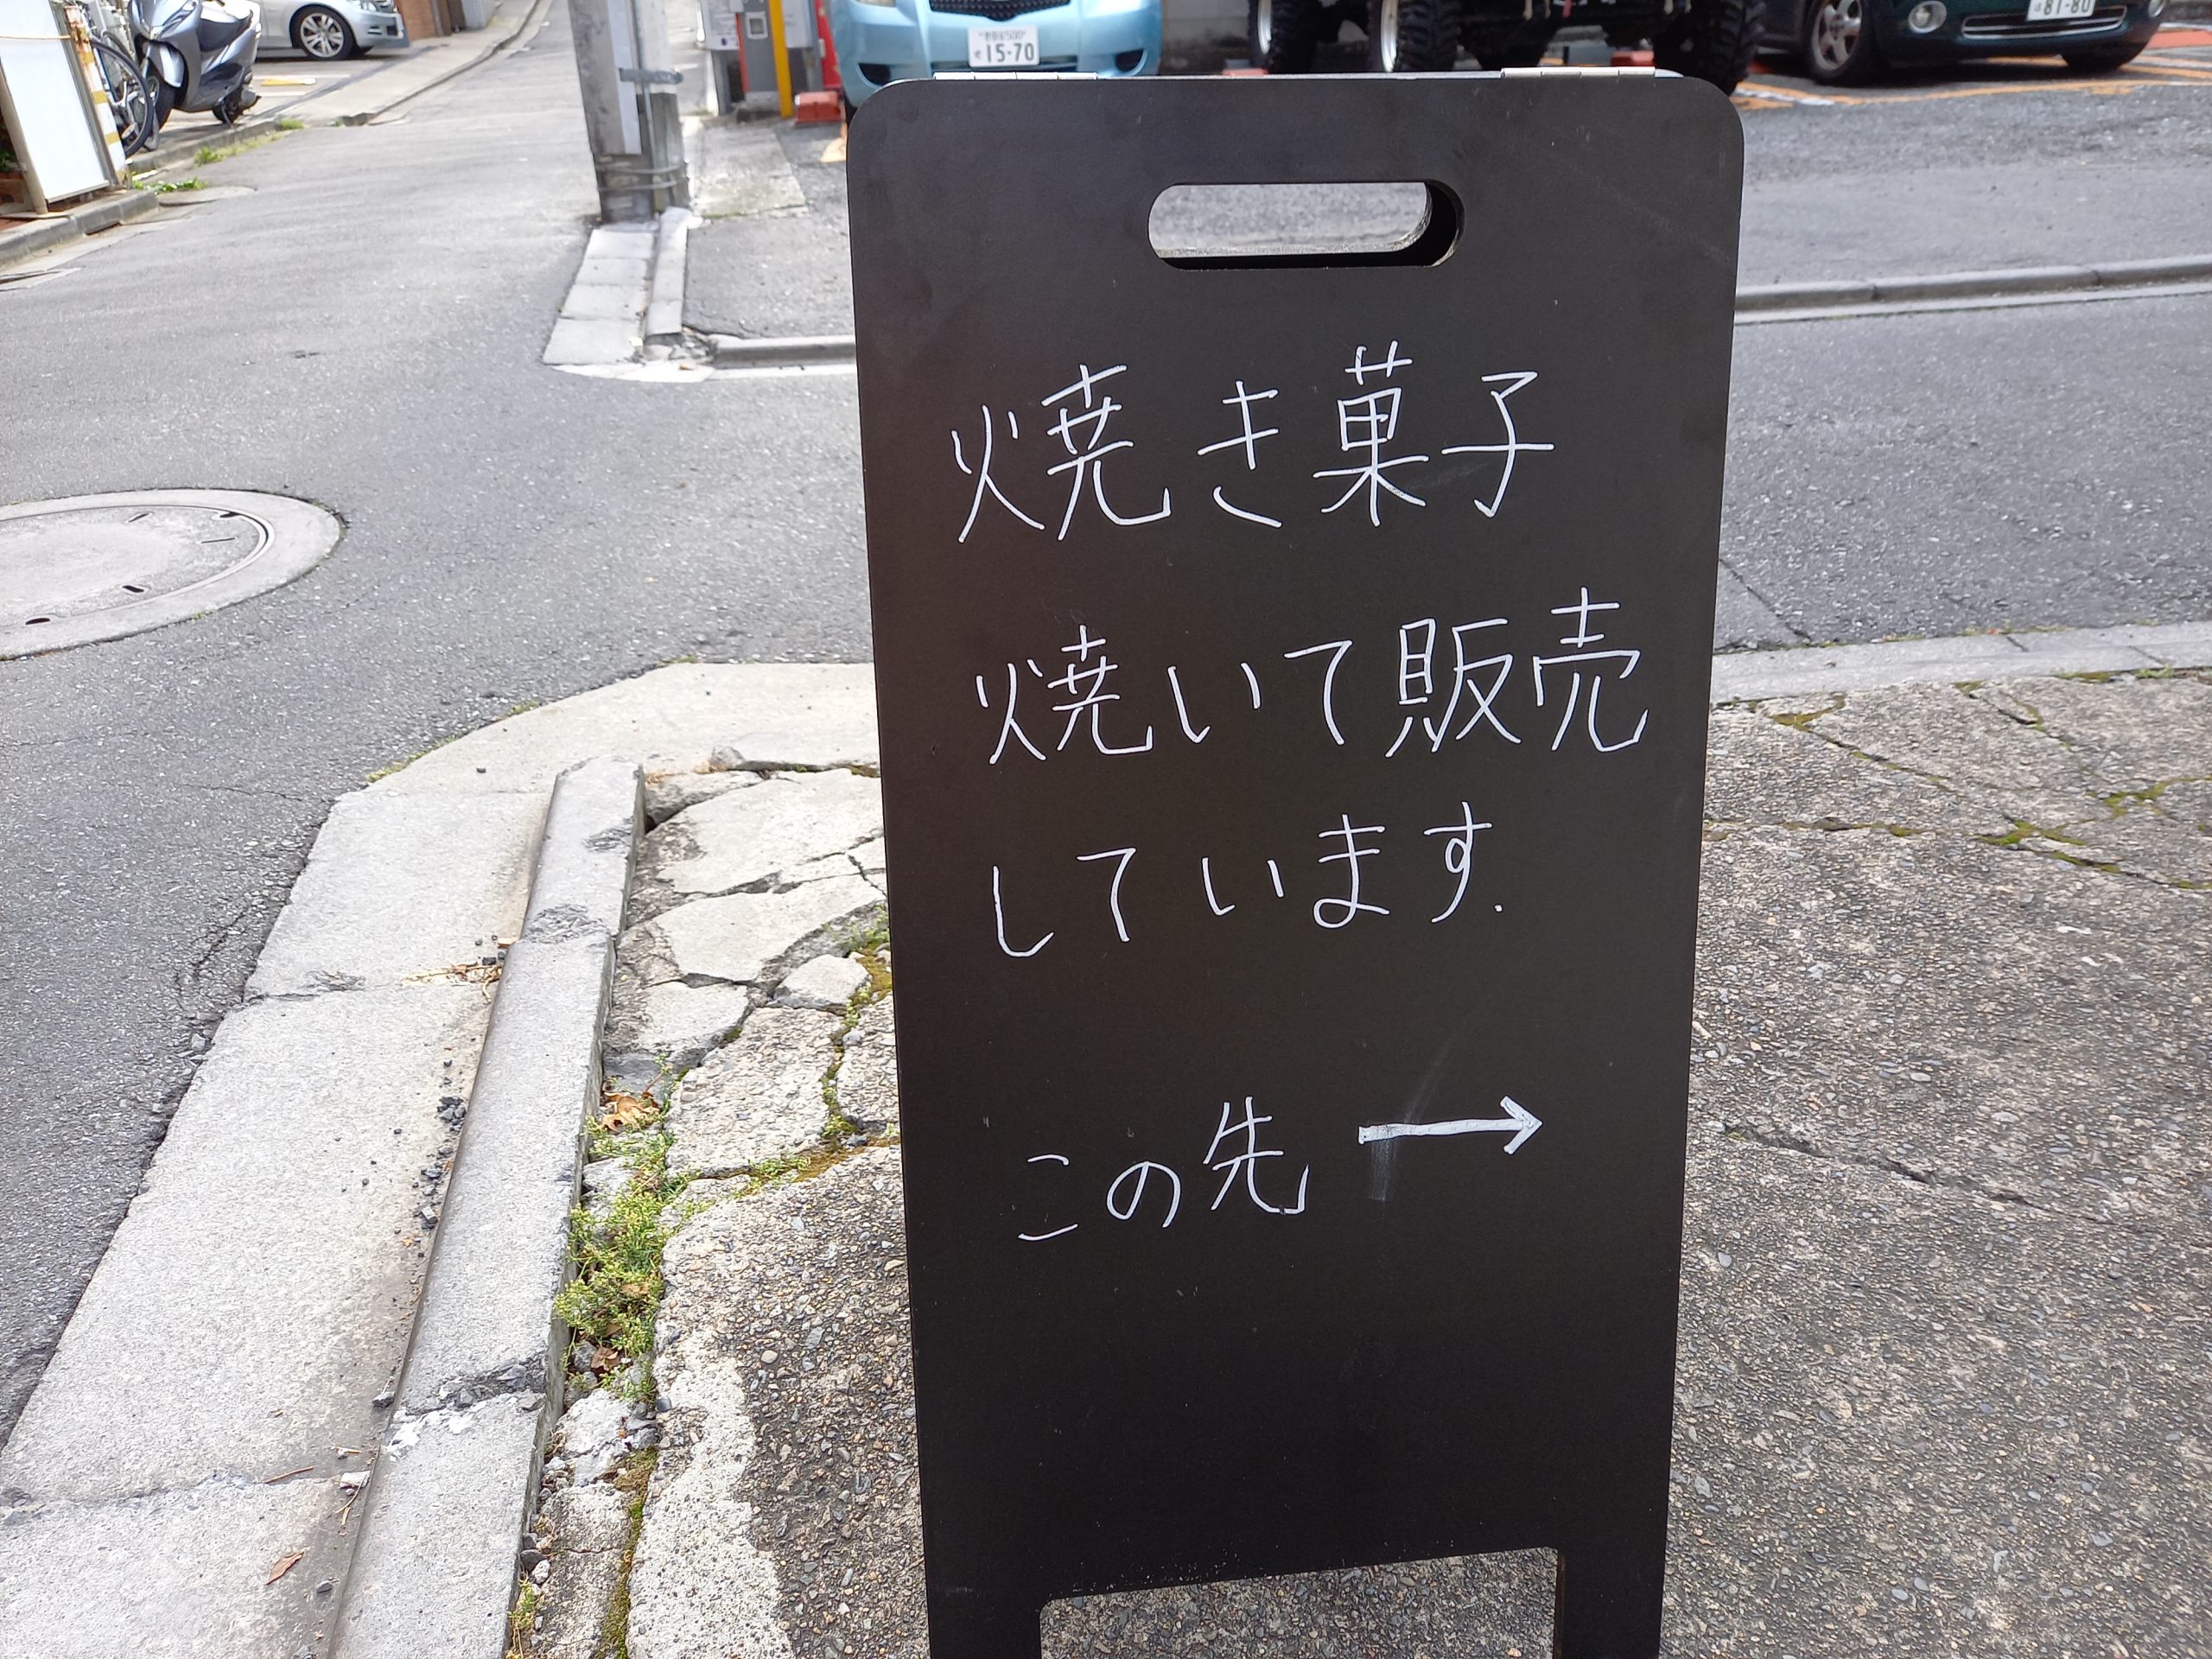 15-70
81-80
焼き菓子
焼いて販売
しています.
この先 →